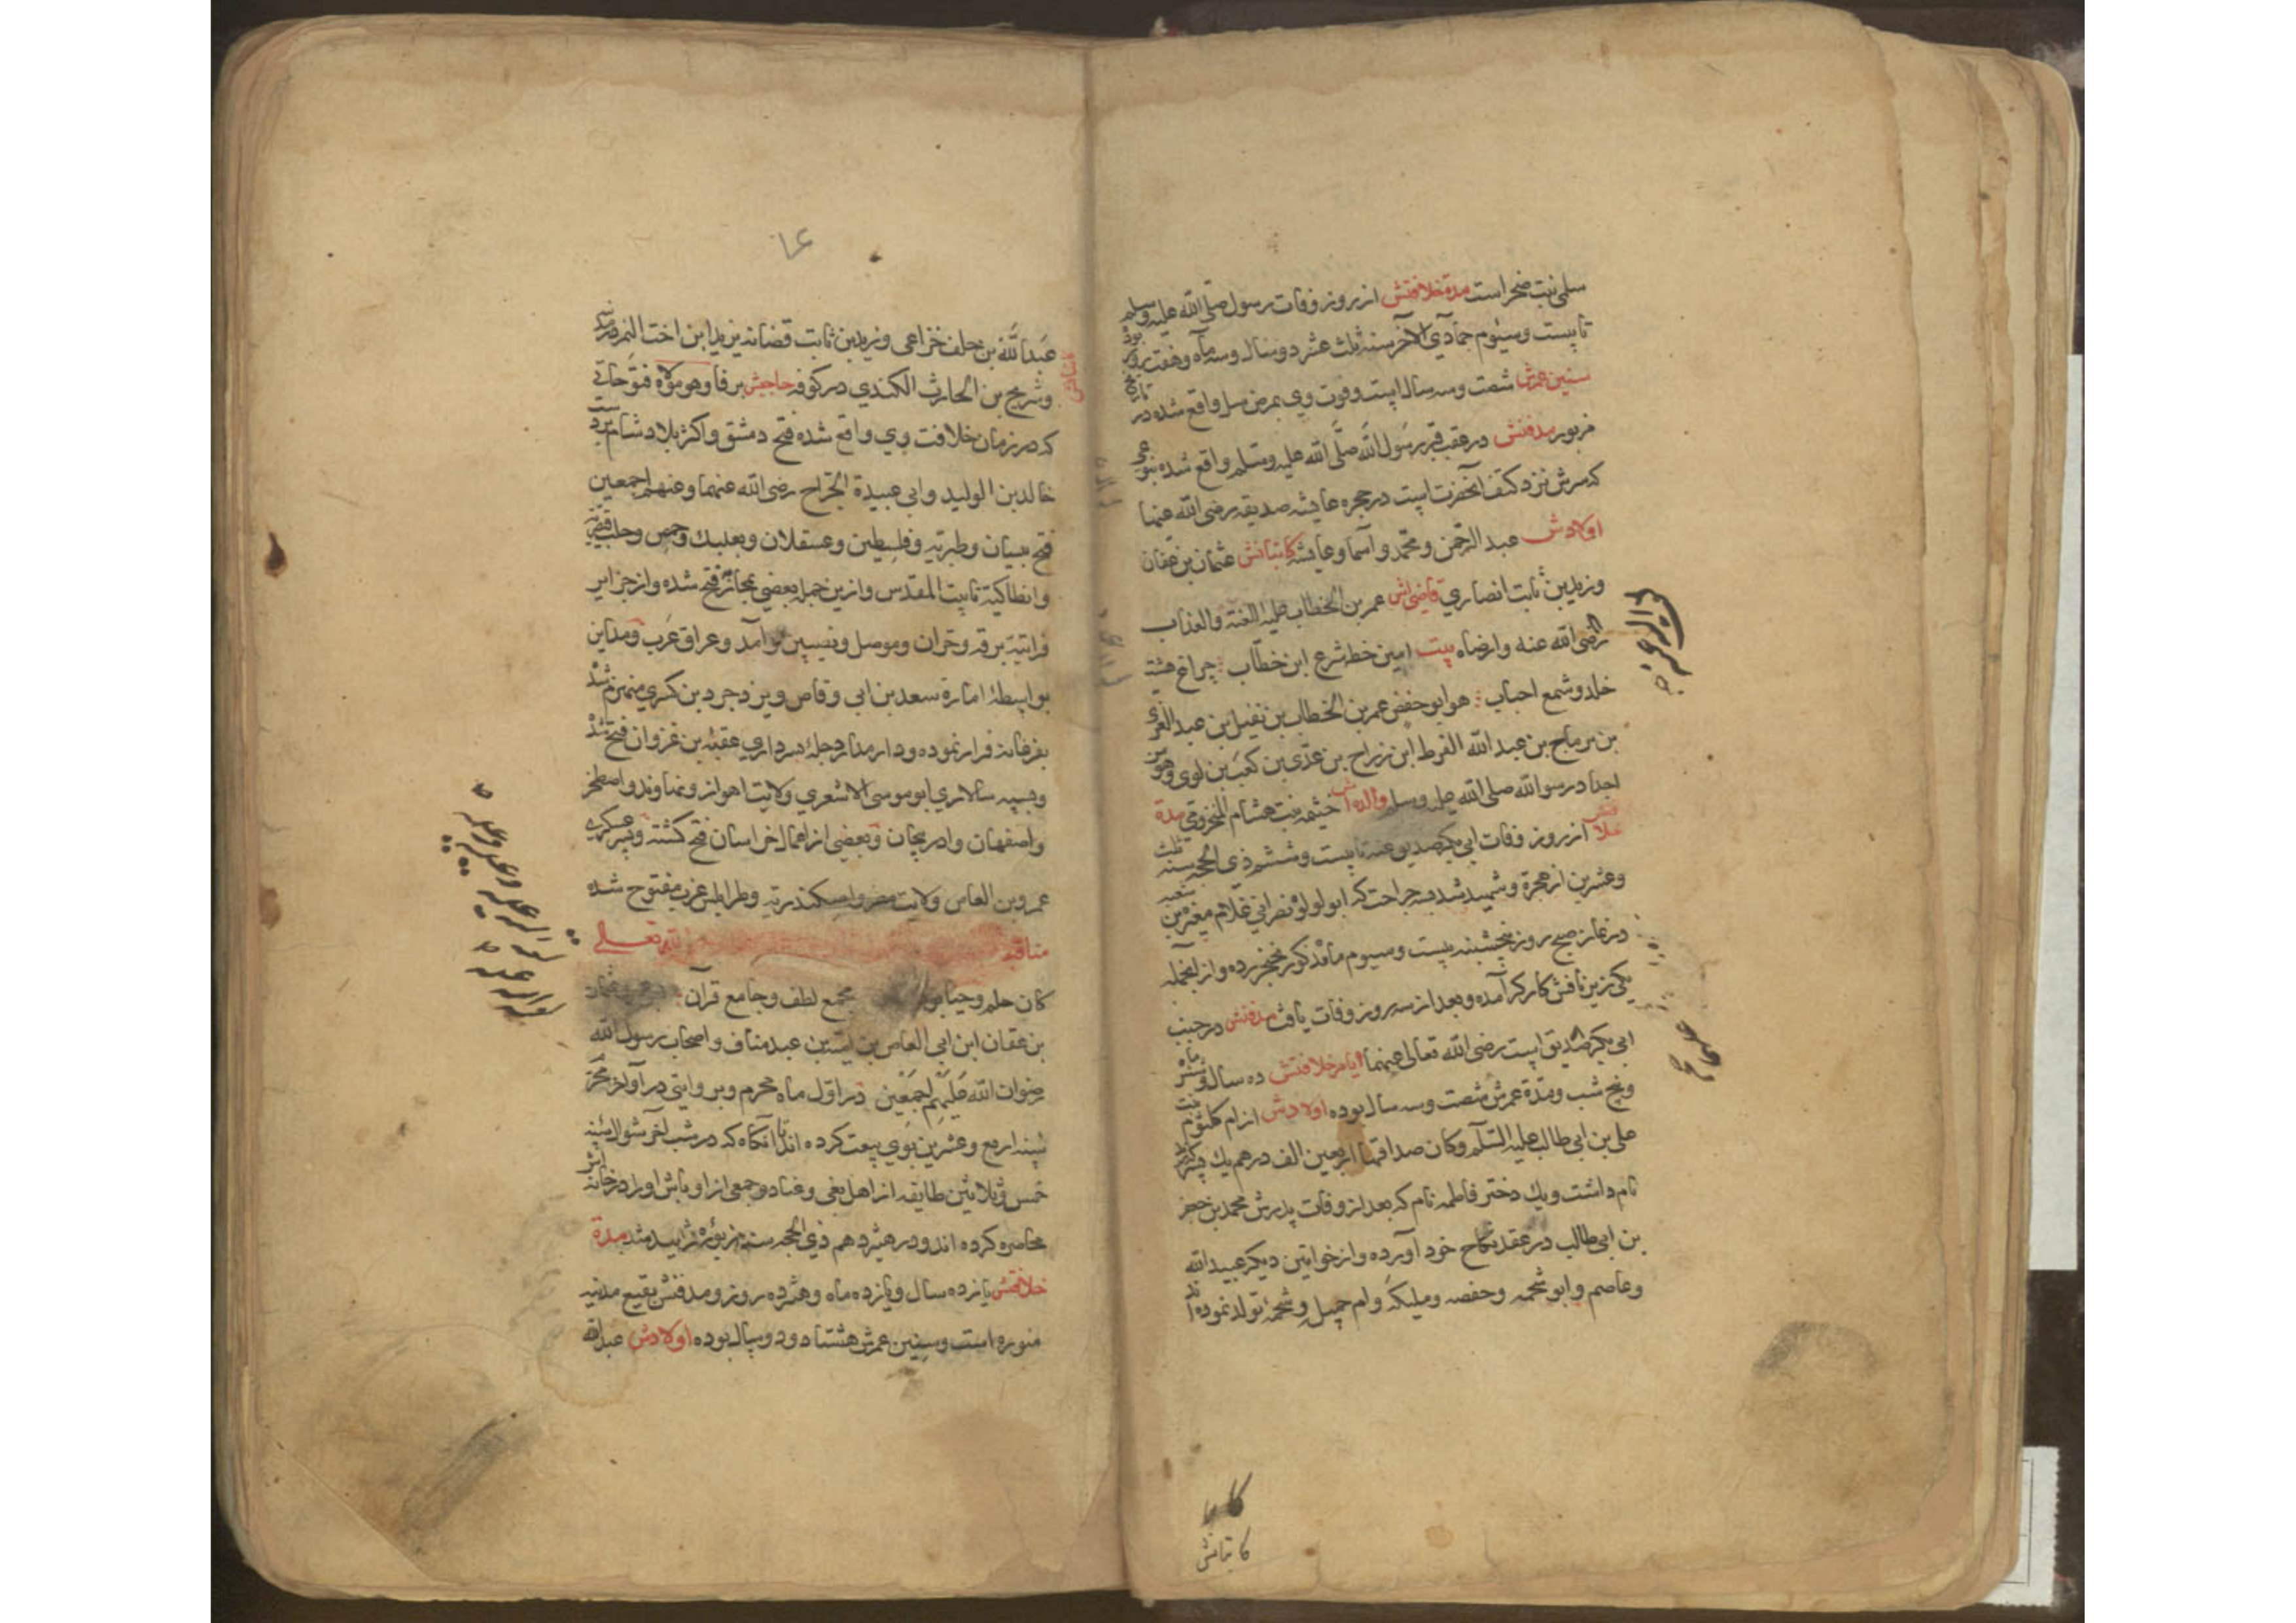 سلمی بنت صخر است مدة خلافتش از روز وفات رسول صلی الله علیه وسلم
تا بیست وسیوم جمادی الآخر سنه ثلث عشر دو سال وسه ماه وهفت روز بود
سنین عمرش شصت وسه سال است وفوت وی بمرض سل واقع شده در تاریخ
مزبور مدفنش در عقب قبر رسول الله صلی الله علیه وسلم واقع شده بنوعی
که سرش نزد کتف آنحضرت است در حجره عایشه صدیقه رضی الله عنها
اولادش عبد الرحمن و محمد و اسما وعایشه کاتبانش عثمان بن عفان
وزید بن ثابت انصاری قاضی اش عمر بن الخطاب علیه العنة والعذاب
رضی الله عنه وارضاه بیت امین خطه شرع ابن خطاب چراغ هشت
خلد وشمع احباب هو ابو حفص عمر بن الخطاب بن نفیل بن عبد العزی
بن رماح بن عبد الله القرط ابن رزاح بن عدی بن کعب بن لوی وهو من
اجداد رسول الله صلی الله علیه وسلم والده اش خیثمه بنت هشام المخزومی مدة
از روز وفات ابی بکر صدیق عنه تا بیست وششم ذی الحجه سنه ثلث
وعشرین از هجرة وشهید شد به جراحت که ابو لولو نصرانی غلام مغیره بن شعبه
در نماز صبح روز پنجشنبه بیست وسیوم ماه مذکور خنجر زده واز انجمله
یکی زیر نافش کارکر آمده وبعد از سه روز وفات یافت مدفنش در جنب
ابی بکر صدیق است رضی الله تعالی عنهما ایام خلافتش ده سال وشش ماه
وپنج شب ومدة عمرش شصت وسه سال بوده اولادش از ام کلثوم بنت
علی بن ابی طالب علیه السلام وکان صداقها اربعین الف درهم یک پسر
نام داشت ویک دختر فاطمه نام که بعد از وفات پدرش محمد بن جعفر
بن ابی طالب در عقد نکاح خود آورده واز خواتین دیکر عبید الله
وعاصم وابو شحمه وحفصه وملیکه وام جمیل وشحمه تولد نموده اند
کاتبانش
عبد الله بن خلف خزاعی وزید بن ثابت قضاته یزید ابن اخت النمر در
وشریح بن الحارث الکندی در کوفه حاجبش یرفا وهو مولاه فتوحاتی
که در زمان خلافت وی واقع شده فتح دمشق واکثر بلاد شام
خالد بن الولید وابی عبیدة الجراح رضی الله عنهما وعنهم اجمعین
فتح بیسان وطبریه وفلسطین وعسقلان وبعلبک وحمص وحلب
وانطاکیة تا بیت المقدس وازین جمله بعضی فتح شده واز جزایر
فراتیة برقه وحران وموصل ونصیبین وآمد وعراق عرب ومداین
بواسطهٔ امارة سعد بن ابی وقاص ویزدجرد بن کسری منهزم شد
بفرغانه فرار نموده ودار مدار دجله سرداری عقبه بن غزوان فتح شد
وبسپه سالاری ابو موسی الاشعری ولایت اهواز ونهاوند واصطخر
واصفهان وادربیجان وبعضی از اعمال خراسان فتح کشته
عمرو بن العاص ولایت مصر واسکندریه وطرابلس غرب مفتوح شده
مناقب الله تعالی
کان حلم وحیا مجمع لطف وجامع قرآن
بن عفان ابن ابی العاص بن امیة بن عبد مناف واصحاب رسول الله
رضوان الله علیهم اجمعین در اول ماه محرم وبر وایتی در آواخر محرم
سنه اربع وعشرین بوی بیعت کرده اند تا آنکاه که در شب آخر شوال سنه
خمس وثلاثین طایفه از اهل بغی وعناد وجمعی از اوباش او را در خانه اش
محاصره کرده اند ودر هیژدهم ذی الحجه سنه مزبوره شهید شد مدة
خلافتش یازده سال ویازده ماه وهژده روز ومدفنش بقیع مدینه
منوره است وسنین عمرش هشتاد ودو سال بوده اولادش عبد الله